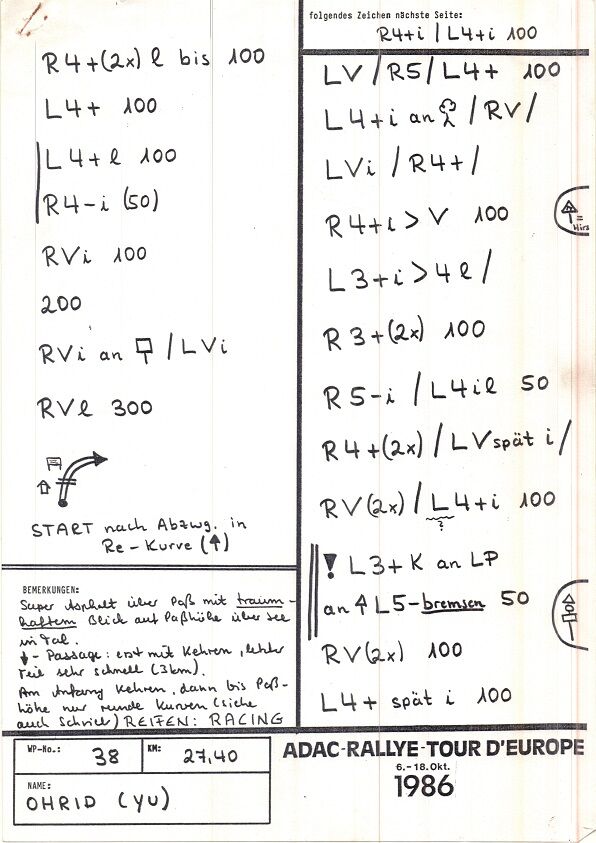 R4+(2x) l bis 100
L4+ 100
L4+l 100
R4-i (50)
RVi 100
200
RVi an / LVi
RVl 300
START nach Abzwg. in
Re-Kurve (↑)
BEMERKUNGEN:
Super Asphalt über Paß mit traum-
haftem Blick auf Paßhöhe über See
im Tal.
↓- Passage: erst mit Kehren, letzter
Teil sehr schnell (3km).
Am Anfang Kehren, dann bis Paß-
höhe nur runde Kurven (siehe
auch Schrieb) REIFEN: RACING
WP-No.: 38 KM: 27,40
NAME:
OHRID (YU)
folgendes Zeichen nächste Seite:
R4+i / L4+i 100
LV / R5 / L4+ 100
L4+i an / RV /
LVi / R4+ /
R4+i > V 100
=
L3+i > 4l /
R3+(2x) 100
R5-i / L4il 50
R4+(2x) / LV spät i /
RV(2x) / L4+i 100
?
! L3+K an LP
an L5-bremsen 50
RV(2x) 100
L4+ spät i 100
ADAC-RALLYE-TOUR D'EUROPE
6.-18.Okt.
1986